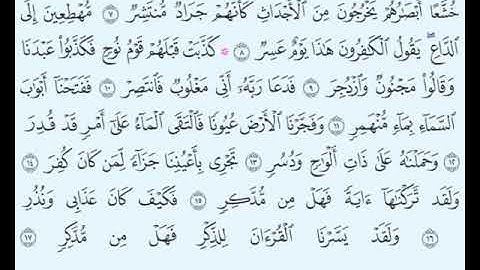 خُشَّعًا أَبْصَـٰرُهُمْ يَخْرُجُونَ مِنَ ٱلْأَجْدَاثِ كَأَنَّهُمْ جَرَادٌ مُّنتَشِرٌ ٧ مُّهْطِعِينَ إِلَى
ٱلدَّاعِ ۖ يَقُولُ ٱلْكَـٰفِرُونَ هَـٰذَا يَوْمٌ عَسِرٌ ٨ ۞ كَذَّبَتْ قَبْلَهُمْ قَوْمُ نُوحٍ فَكَذَّبُوا۟ عَبْدَنَا
وَقَالُوا۟ مَجْنُونٌ وَٱزْدُجِرَ ٩ فَدَعَا رَبَّهُۥٓ أَنِّى مَغْلُوبٌ فَٱنتَصِرْ ١٠ فَفَتَحْنَآ أَبْوَٰبَ
ٱلسَّمَآءِ بِمَآءٍ مُّنْهَمِرٍ ١١ وَفَجَّرْنَا ٱلْأَرْضَ عُيُونًا فَٱلْتَقَى ٱلْمَآءُ عَلَىٰٓ أَمْرٍ قَدْ قُدِرَ
١٢ وَحَمَلْنَـٰهُ عَلَىٰ ذَاتِ أَلْوَٰحٍ وَدُسُرٍ ١٣ تَجْرِى بِأَعْيُنِنَا جَزَآءً لِّمَن كَانَ كُفِرَ ١٤
وَلَقَد تَّرَكْنَـٰهَآ ءَايَةً فَهَلْ مِن مُّدَّكِرٍ ١٥ فَكَيْفَ كَانَ عَذَابِى وَنُذُرِ
١٦ وَلَقَدْ يَسَّرْنَا ٱلْقُرْءَانَ لِلذِّكْرِ فَهَلْ مِن مُّدَّكِرٍ ١٧